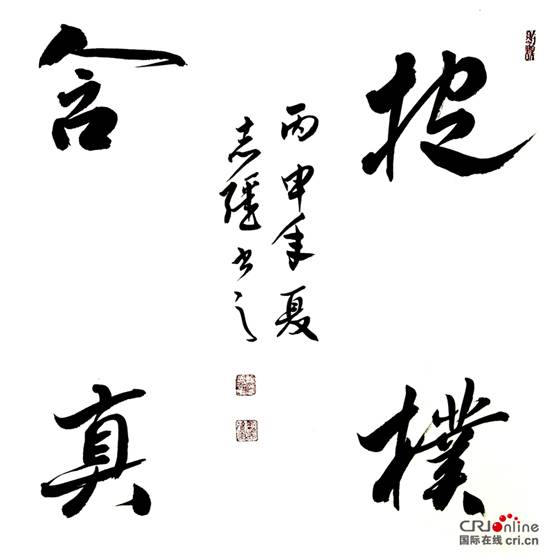 抱樸
含真
丙申年夏
志書之
CRIonline
国际在线 cri.cn